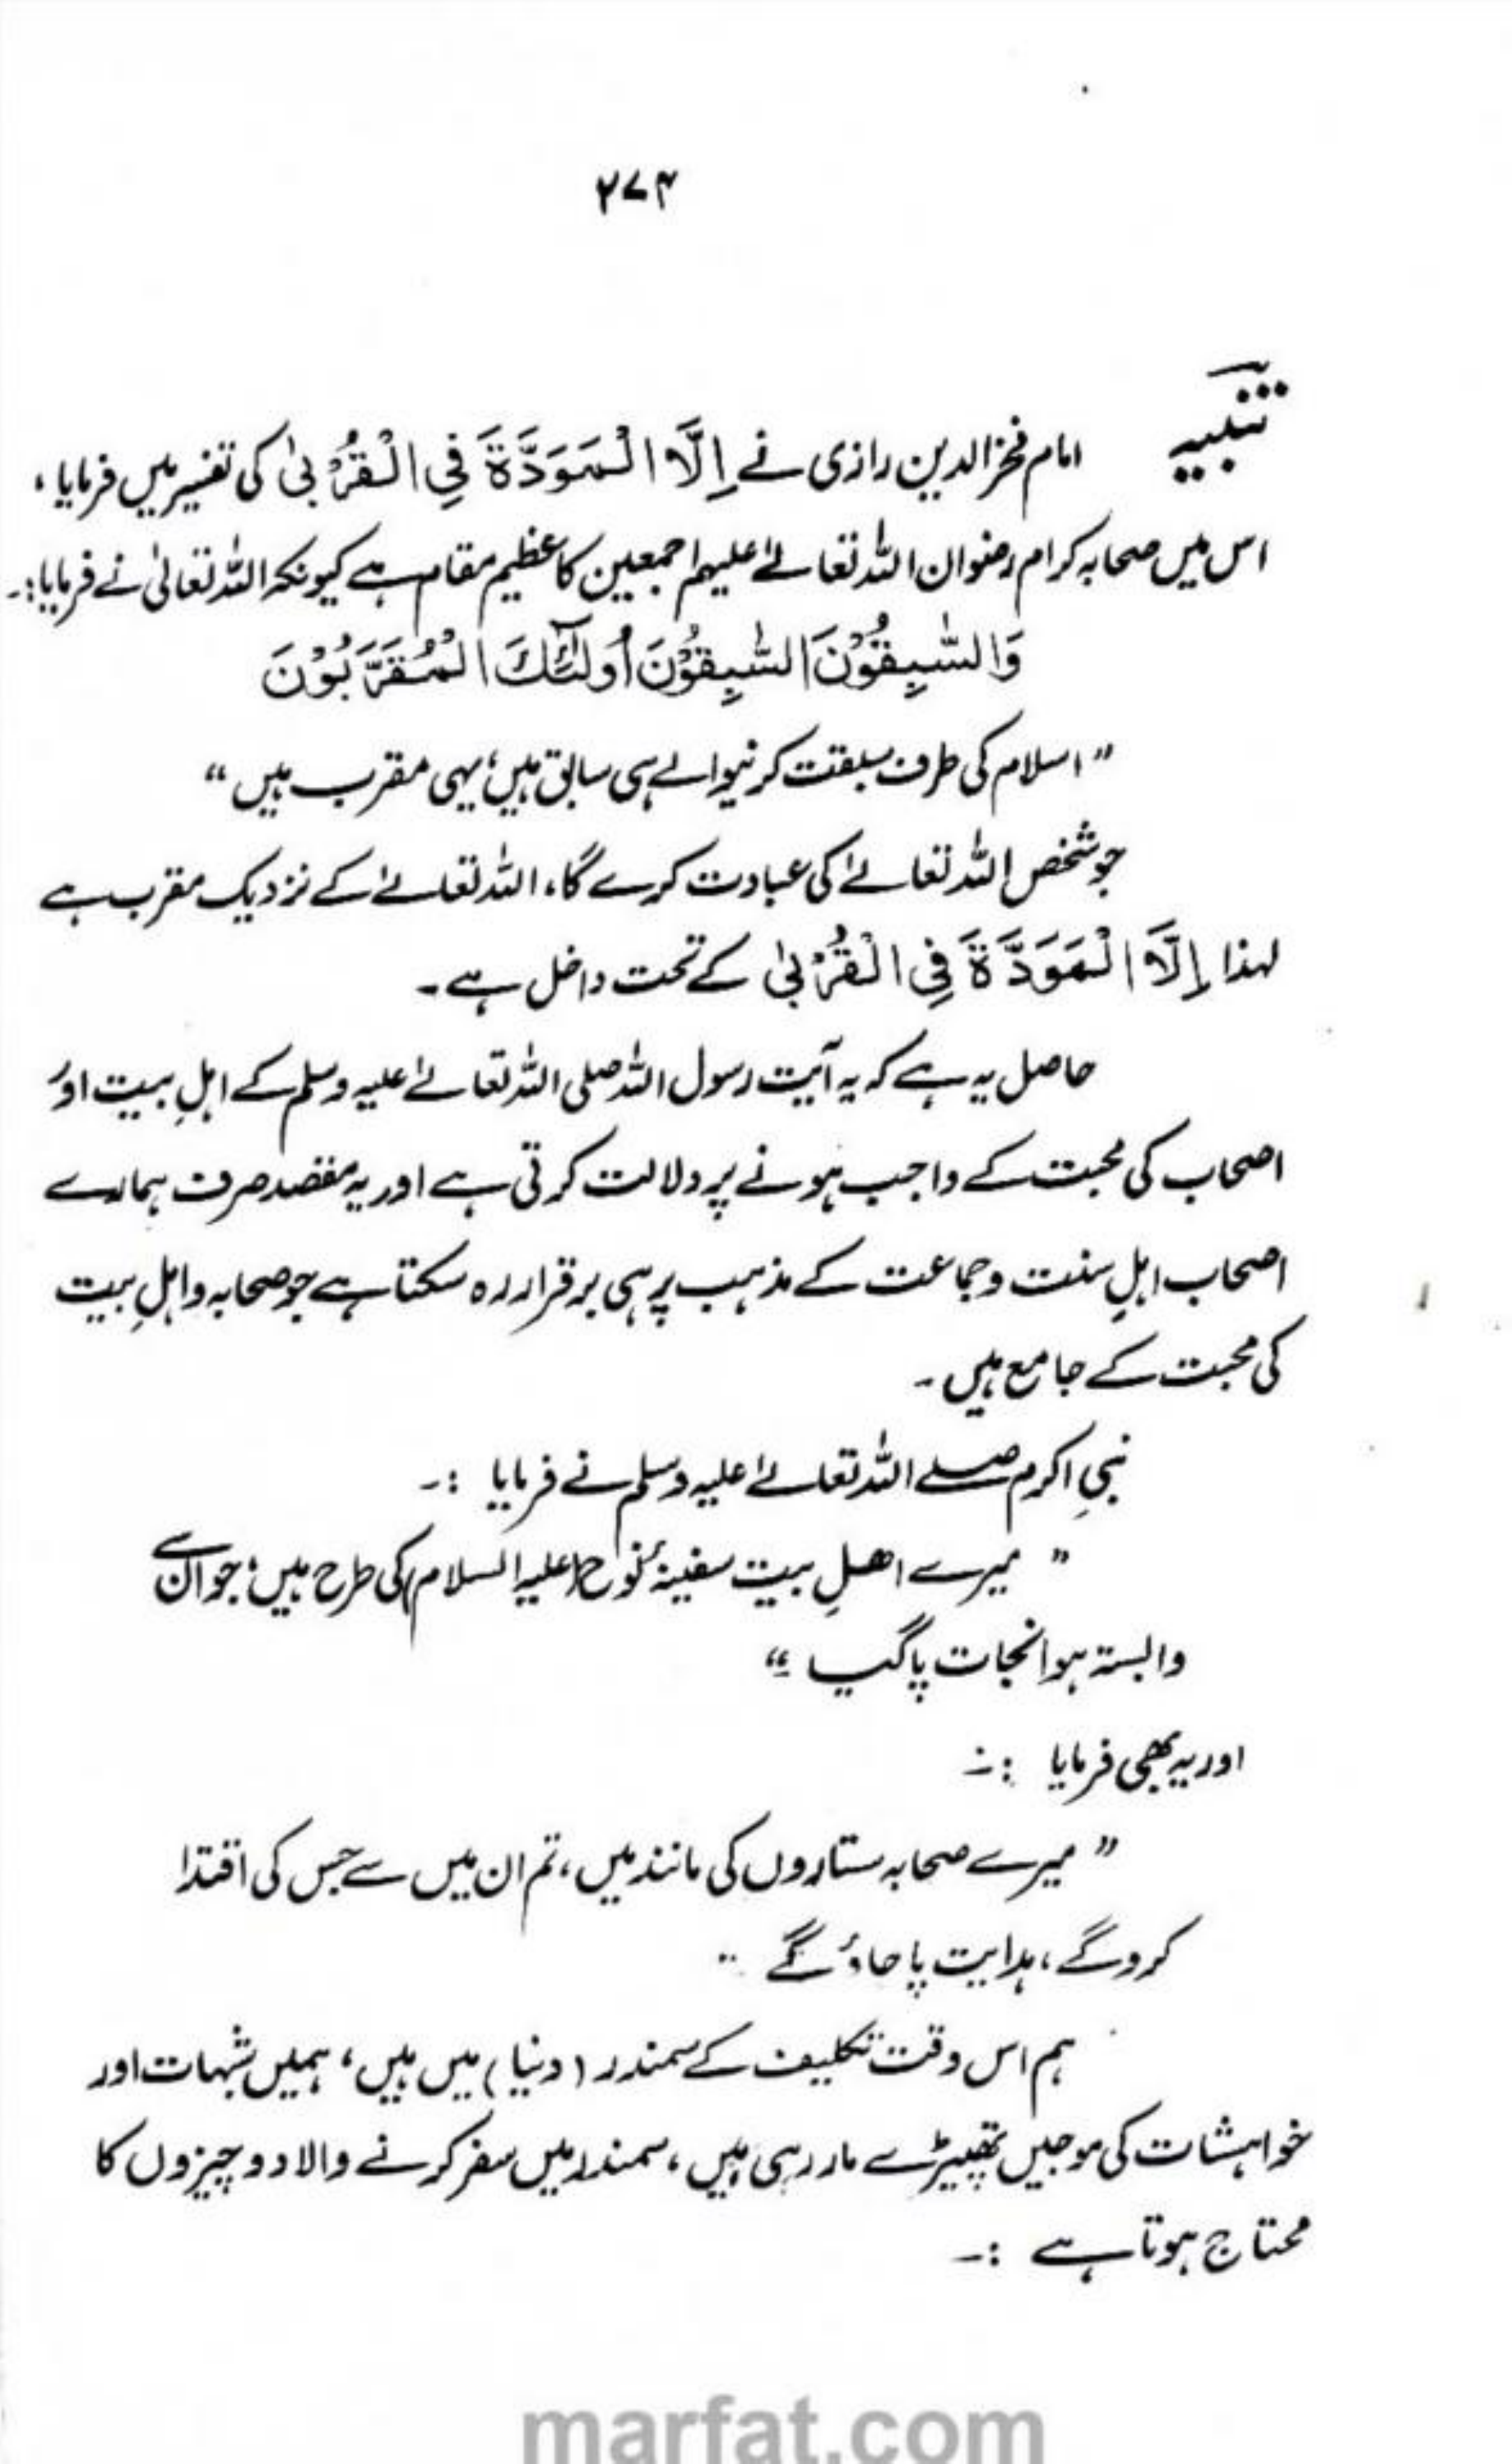 ۲۷۴
تنبیہ
امام فخر الدین رازی نے اِلَّا الْمَوَدَّةَ فِی الْقُرْبٰی کی تفسیر میں فرمایا،
اس میں صحابہ کرام رضوان اللہ تعالےٰ علیہم اجمعین کا عظیم مقام ہے کیونکہ اللہ تعالیٰ نے فرمایا:۔
وَالسّٰبِقُوْنَ السّٰبِقُوْنَ اُولٰٓئِكَ الْمُقَرَّبُوْنَ
" اسلام کی طرف سبقت کرنیوالے ہی سابق ہیں، یہی مقرب ہیں "
جو شخص اللہ تعالےٰ کی عبادت کرے گا، اللہ تعالےٰ کے نزدیک مقرب ہے
لہذا اِلَّا الْمَوَدَّةَ فِی الْقُرْبٰی کے تحت داخل ہے ۔
حاصل یہ ہے کہ یہ آیت رسول اللہ صلی اللہ تعالےٰ علیہ وسلم کے اہلِ بیت اور
اصحاب کی محبت کے واجب ہونے پر دلالت کرتی ہے اور یہ مقصد صرف ہمارے
اصحاب اہلِ سنت و جماعت کے مذہب پر ہی برقرار رہ سکتا ہے جو صحابہ و اہلِ بیت
کی محبت کے جامع ہیں ۔
نبیِ اکرم صلے اللہ تعالےٰ علیہ وسلم نے فرمایا :۔
" میرے اھلِ بیت سفینۂ نوح (علیہ السلام) کی طرح ہیں، جو ان سے
وابستہ ہوا نجات پا گیا ۔"
اور یہ بھی فرمایا :۔
" میرے صحابہ ستاروں کی مانند ہیں، تم ان میں سے جس کی اقتدا
کرو گے، ہدایت پا جاؤ گے "
ہم اس وقت تکلیف کے سمندر (دنیا) میں ہیں، ہمیں شبہات اور
خواہشات کی موجیں تھپیڑے مار رہی ہیں، سمندر میں سفر کرنے والا دو چیزوں کا
محتاج ہوتا ہے :۔
marfat.com